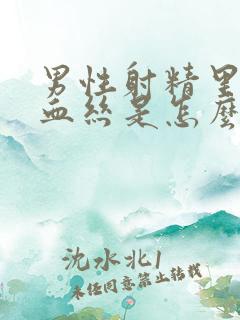 男性射精里
血丝是怎么
沈水北1
未经同意禁止转载